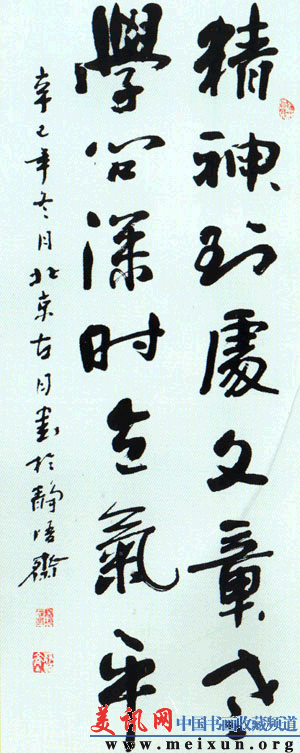 精神到處文章老
學问深时意氣平
辛巳年冬月北京古月書於靜悟齋
美讯网 中国书画收藏频道
www.meixun.org